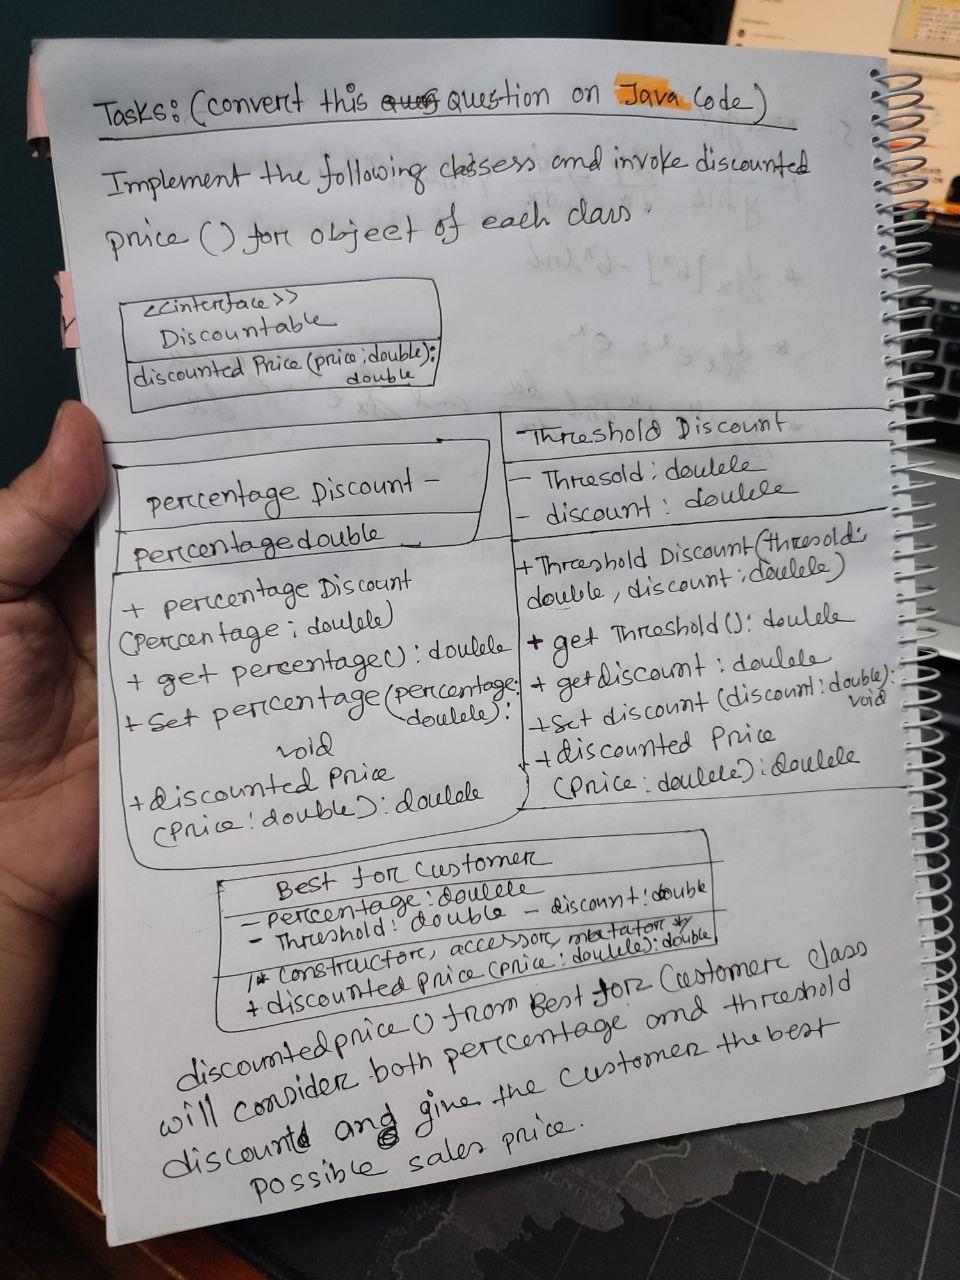 Tasks: (convert this question on Java Code)
Implement the following classess and invoke discounted
price () for object of each class.
<<interface>>
Discountable
discounted Price (price: double):
double
Percentage Discount -
percentage double
+ percentage Discount
(percentage: double)
+ get percentage(): double
+ Set percentage (percentage:
double):
void
+ discounted Price
(Price: double): double
- Threshold Discount
- Thresold: double
- discount: double
+ Threshold Discount (thresold:
double, discount: double)
+ get Threshold(): double
+ get discount: double
+ Set discount (discount: double):
void
+ discounted Price
(Price: double): double
Best for Customer
- Percentage: double
- Threshold: double - discount: double
/* constructor, accessor, mutator */
+ discounted price (price: double): double
discounted price () from Best for Customer class
will consider both percentage and threshold
discount and give the customer the best
possible sales price.